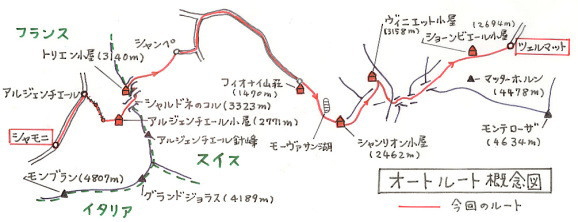 フランス
トリエン小屋(3140m)
シャンペ
アルジェンチエール
シャモニ
シャルドネのコル(3323m)
アルジェンチエール小屋(2771m)
アルジェンチエール針峰
スイス
モンブラン(4807m)
グランドジョラス(4189m)
イタリア
フィオナイ山荘
(1490m)
モーヴァサン湖
シャンリオン小屋
(2462m)
ヴィニエット小屋
(3158m)
(2694m)
ショーンビエール小屋
ツェルマット
マッターホルン
(4478m)
モンテローザ
(4634m)
オートルート概念図
今回のルート